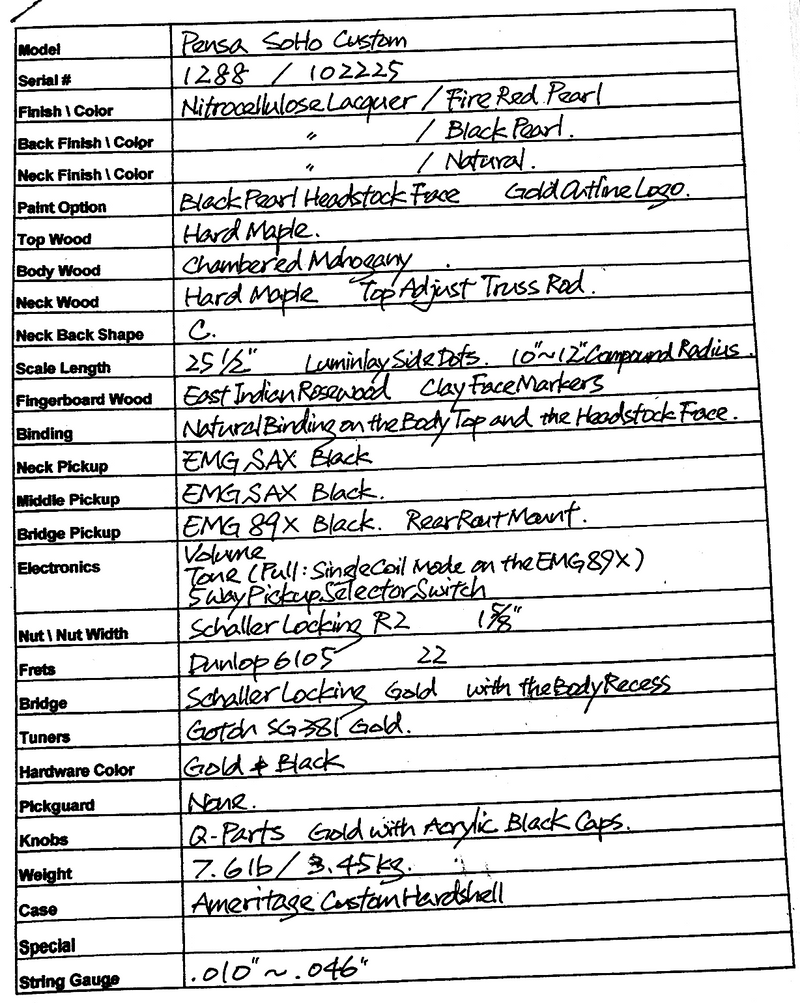 Model Pensa SoHo Custom
Serial # 1288 / 102225
Finish \ Color Nitrocellulose Lacquer / Fire Red Pearl
Back Finish \ Color " / Black Pearl.
Neck Finish \ Color " / Natural.
Paint Option Black Pearl Headstock Face Gold Outline Logo.
Top Wood Hard Maple.
Body Wood Chambered Mahogany .
Neck Wood Hard Maple Top Adjust Truss Rod.
Neck Back Shape C.
Scale Length 25 1/2" Luminlay Side Dots. 10"~12" Compound Radius.
Fingerboard Wood East Indian Rosewood Clay Face Markers
Binding Natural Binding on the Body Top and the Headstock Face.
Neck Pickup EMG SAX Black
Middle Pickup EMG SAX Black.
Bridge Pickup EMG 89X Black. Rear Rout Mount.
Electronics Volume
Tone (Pull: Single Coil Mode on the EMG 89X)
5 way Pickup Selector Switch
Nut \ Nut Width Schaller Locking R2 1 5/8"
Frets Dunlop 6105 22
Bridge Schaller Locking Gold with the Body Recess
Tuners Gotoh SG381 Gold.
Hardware Color Gold & Black
Pickguard None.
Knobs Q-Parts Gold with Acrylic Black Caps.
Weight 7.6 lb / 3.45 kg.
Case Ameritage Custom Hardshell
Special
String Gauge .010" ~ .046"